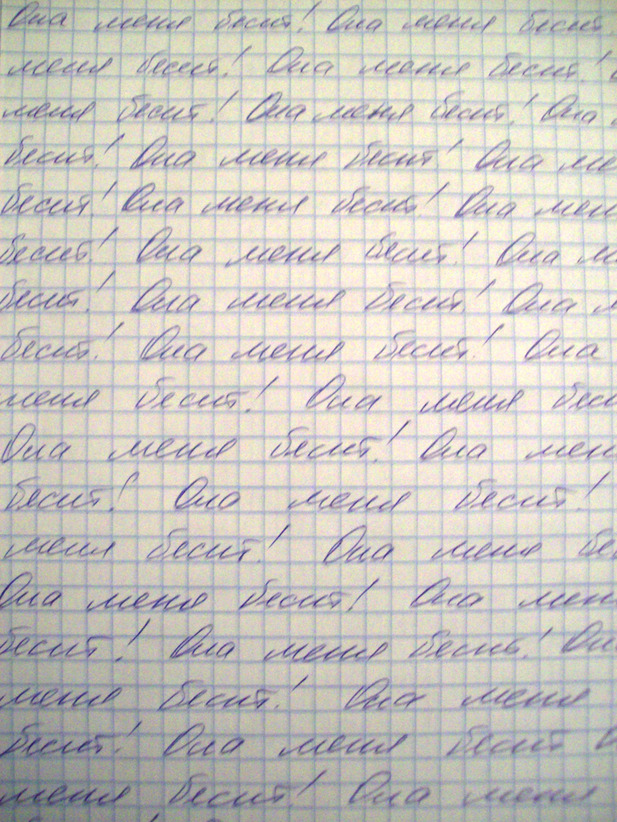 Она меня бесит! Она меня бесит.
меня бесит! Она меня бесит!
меня бесит! Она меня бесит! Она
бесит! Она меня бесит! Она ме
бесит! Она меня бесит! Она мен
бесит! Она меня бесит! Она м
бесит! Она меня бесит! Она м
бесит! Она меня бесит! Она
меня бесит! Она меня бес
Она меня бесит! Она мен
бесит! Она меня бесит!
меня бесит! Она меня бе
Она меня бесит! Она мен
бесит! Она меня бесит! Он
меня бесит! Она меня
бесит! Она меня бесит
меня бесит! Она меня